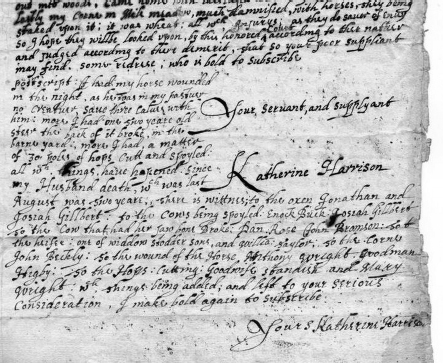 out mile woods, I came home
lastly my Corne in this meadow, much damnified, with horses, they being
staked upon it; it was wheat;
Injuryes, as they do savor of Envy
so I hope they willbe looked upon, by this honored Court according to their nature
and judged according to there demerit, that so your poor suppliant
may find. some redrese; who is bold to subscribe
Your, servant, and supplyant
Katherine Harrison
postscript: I had my horse wounded
in the night, as he was in my pasture
no Creature save three Calves with
him: more I had one two yeare old
steer the back of it broke, in the
barne yard; more I had, a matter
of 30 poles of hops Cutt and spoyled.
all wch things, have hapened. since
my Husband death, wch was last
August was two yeare, there is witnes; to the oxen Jonathan and
Josiah Gilbert; to the Cows being spoyled: Enock Buck, Josiah Gilbert
to the Cow that had her Jaw bone Broke: Dan, Rose, John Bronson: to the
heifer: one of widdow stodder sons, and Willia: Taylor; to the Corne
John Beckly; to the wound of the Horse, Anthony wright, Goodman
Higby; to the Hops Cutting, Goodwife standish and Mary
wright: wch things being added; and left to your serious
Consideration, I make bold again to subscribe.
Yours Katherine Harrison